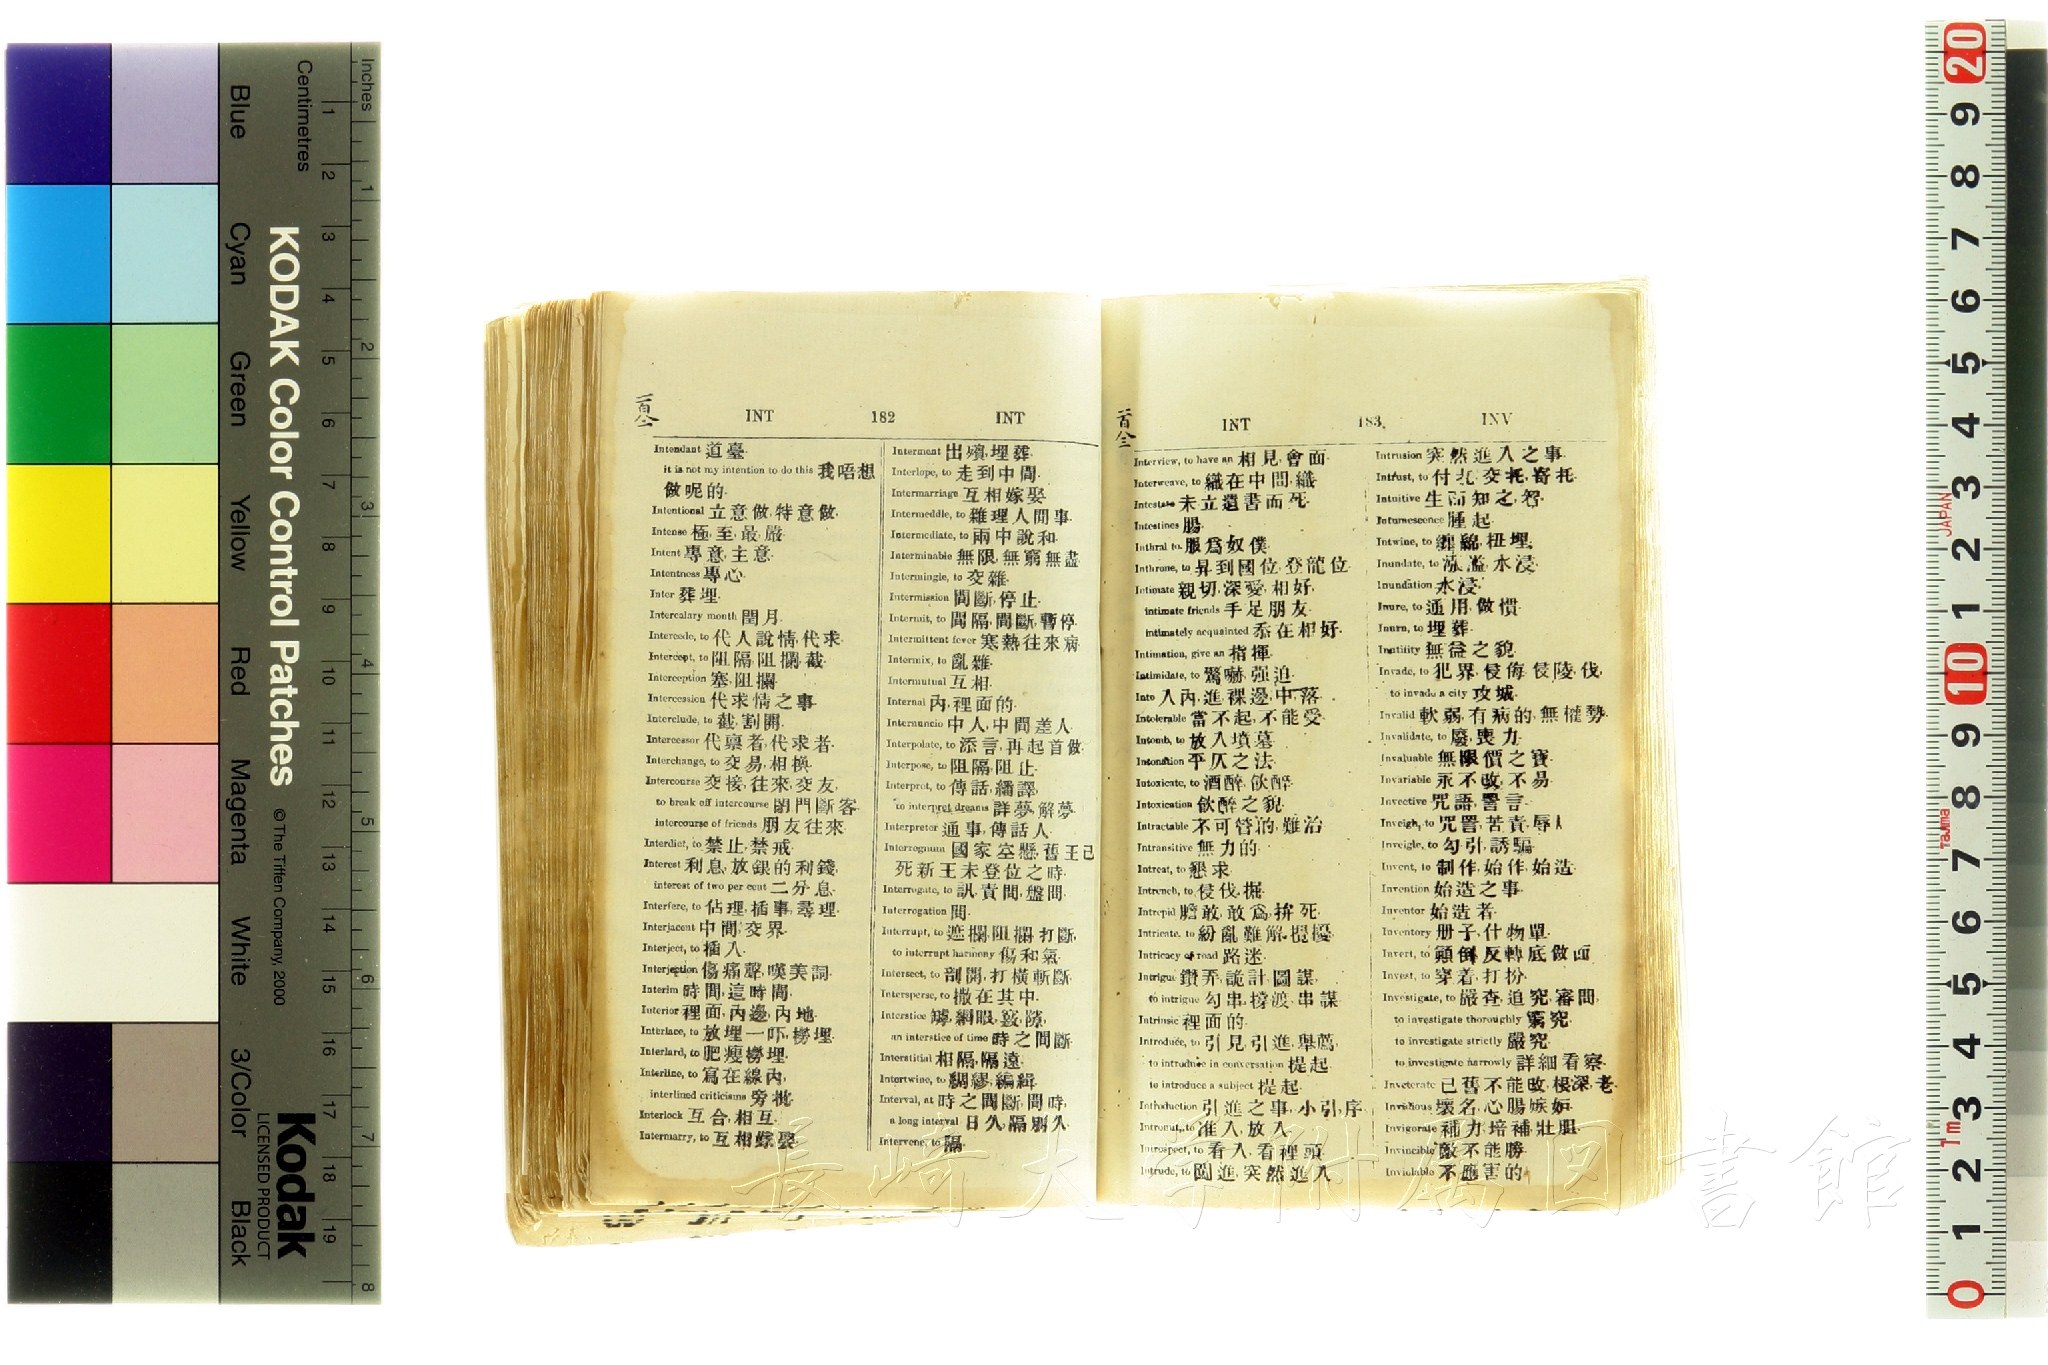 INT 182 INT
Intendant 道臺.
it is not my intention to do this 我唔想
做呢的.
Intentional 立意做, 特意做.
Intense 極, 至, 最, 嚴.
Intent 專意, 主意.
Intentness 專心.
Inter 葬埋.
Intercalary month 閏月.
Intercede, to 代人說情, 代求.
Intercept, to 阻隔, 阻攔, 截.
Interception 塞, 阻攔.
Intercession 代求情之事.
Interclude, to 截, 割開.
Intercessor 代禀者, 代求者.
Interchange, to 交易, 相換.
Intercourse 交接, 往來, 交友,
to break off intercourse 閉門斷客.
intercourse of friends 朋友往來.
Interdict, to 禁止, 禁戒.
Interest 利息, 放銀的利錢,
interest of two per cent 二分息.
Interfere, to 佔理, 插事, 尋理.
Interjacent 中間, 交界.
Interject, to 插入.
Interjection 傷痛聲, 嘆美詞.
Interim 時間, 這時間.
Interior 裡面, 內邊, 內地.
Interlace, to 放埋一吓, 撈埋.
Interlard, to 肥瘦撈埋.
Interline, to 寫在線內,
interlined criticisms 旁批.
Interlock 互合, 相互.
Intermarry, to 互相嫁娶.
Interment 出殯, 埋葬.
Interlope, to 走到中間.
Intermarriage 互相嫁娶.
Intermeddle, to 雜理人間事.
Intermediate, to 兩中說和.
Interminable 無限, 無窮無盡.
Intermingle, to 交雜.
Intermission 間斷, 停止.
Intermit, to 間隔, 間斷, 暫停.
Intermittent fever 寒熱往來病.
Intermix, to 亂雜.
Intermutual 互相.
Internal 內, 裡面的.
Internuncio 中人, 中間差人.
Interpolate, to 添言, 再起首做.
Interpose, to 阻隔, 阻止.
Interpret, to 傳話, 繙譯,
to interpret dreams 詳夢, 解夢.
Interpreter 通事, 傳話人.
Interregnum 國家空懸, 舊王已
死新王未登位之時.
Interrogate, to 訊, 責問, 盤問.
Interrogation 問.
Interrupt, to 遮攔, 阻攔, 打斷,
to interrupt harmony 傷和氣.
Intersect, to 剖開, 打橫斬斷.
Intersperse, to 撒在其中.
Interstice 罅, 網眼, 竅, 隙,
an interstice of time 時之間斷.
Interstitial 相隔, 隔遠.
Intertwine, to 綢繆, 編緝.
Interval, at 時之間斷, 間時,
a long interval 日久, 隔別久.
Intervene, to 隔.
INT 183 INV
Interview, to have an 相見, 會面.
Interweave, to 織在中間, 織.
Intestate 未立遺書而死.
Intestines 腸.
Inthral to, 服爲奴僕.
Inthrone, to 昇到國位, 登龍位.
Intimate 親切, 深愛, 相好,
intimate friends 手足朋友.
intimately acquainted 忝在相好.
Intimation, give an 指揮.
Intimidate, to 驚嚇, 强迫.
Into 入內, 進裡邊, 中落.
Intolerable 當不起, 不能受.
Intomb, to 放入墳墓.
Intonation 平仄之法.
Intoxicate, to 酒醉, 飲醉.
Intoxication 飲醉之貌.
Intractable 不可管的, 難治.
Intransitive 無力的.
Intreat, to 懇求.
Intrench, to 侵伐, 掘.
Intrepid 膽敢, 敢爲, 拚死.
Intricate, to 紛亂難解, 混擾.
Intricacy of road 路迷.
Intrigue 鑽弄, 詭計, 圖謀,
to intrigue 勾串, 撐渡, 串謀.
Intrinsic 裡面的.
Introduce, to 引見, 引進, 舉薦,
to introduce in conversation 提起.
to introduce a subject 提起.
Introduction 引進之事, 小引, 序.
Intromit, to 准入, 放入.
Introspect, to 看入, 看裡頭.
Intrude, to 闖進, 突然進入.
Intrusion 突然進入之事.
Intrust, to 付托, 交托, 寄托.
Intuitive 生而知之, 智.
Intumescence 腫起.
Intwine, to 纏綿, 扭埋.
Inundate, to 泛濫, 水浸.
Inundation 水浸.
Inure, to 通用, 做慣.
Inurn, to 埋葬.
Inutility 無益之貌.
Invade, to 犯界, 侵侮, 侵陵, 伐,
to invade a city 攻城.
Invalid 軟弱, 有病的, 無權勢.
Invalidate, to 廢, 喪力.
Invaluable 無限價之寶.
Invariable 永不改, 不易.
Invective 咒語, 詈言.
Inveigh, to 咒詈, 苦責, 辱人.
Inveigle, to 勾引, 誘騙.
Invent, to 制作, 始作, 始造.
Invention 始造之事.
Inventor 始造者.
Inventory 册子, 什物單.
Invert, to 顛倒, 反轉底做面.
Invest, to 穿着, 打扮.
Investigate, to 嚴查, 追究, 審問,
to investigate thoroughly 窮究.
to investigate strictly 嚴究.
to investigate narrowly 詳細看察.
Inveterate 已舊不能改, 根深, 老.
Invidious 壞名, 心腸嫉妒.
Invigorate 補力, 培補, 壯胆.
Invincible 敵不能勝.
Inviolable 不應害的.
長崎大学附属図書館
KODAK Color Control Patches
© The Tiffen Company, 2000
Kodak
LICENSED PRODUCT
Inches
1 2 3 4 5 6 7 8
Centimetres
1 2 3 4 5 6 7 8 9 10 11 12 13 14 15 16 17 18 19
Blue Cyan Green Yellow Red Magenta White 3/Color Black
20 9 8 7 6 5 4 3 2 1 10 9 8 7 6 5 4 3 2 1 0
JAPAN
Tajima
1m